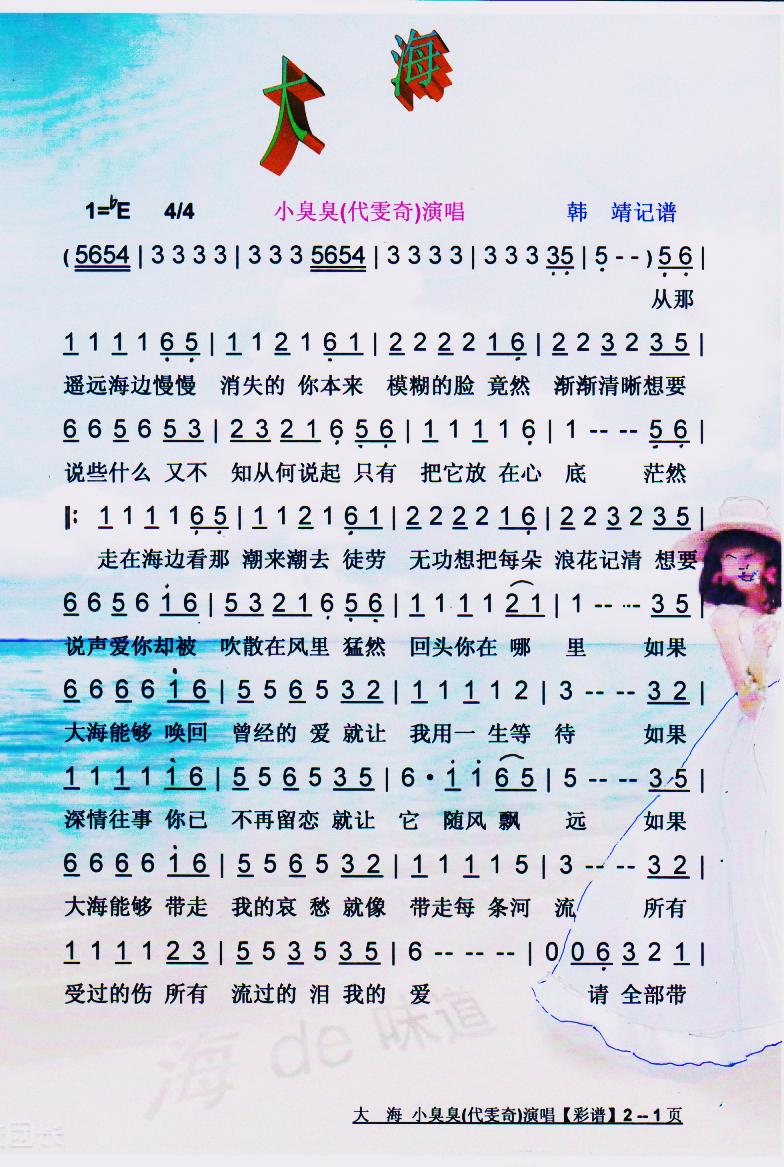 大 海
1=♭E 4/4 小臭臭(代雯奇)演唱 韩 靖记谱
( 5654 | 3 3 3 3 | 3 3 3 5654 | 3 3 3 3 | 3 3 3 35 | 5 - - ) 5 6 |
从那
1 1 1 1 6 5 | 1 1 2 1 6 1 | 2 2 2 2 1 6 | 2 2 3 2 3 5 |
遥远海边慢慢 消失的 你本来 模糊的脸 竟然 渐渐清晰想要
6 6 5 6 5 3 | 2 3 2 1 6 5 6 | 1 1 1 1 6 | 1 -- -- 5 6 |
说些什么 又不 知从何说起 只有 把它放 在心 底 茫然
‖: 1 1 1 1 6 5 | 1 1 2 1 6 1 | 2 2 2 2 1 6 | 2 2 3 2 3 5 |
走在海边看那 潮来潮去 徒劳 无功想把每朵 浪花记清 想要
6 6 5 6 1 6 | 5 3 2 1 6 5 6 | 1 1 1 1 2 1 | 1 -- -- 3 5 |
说声爱你却被 吹散在风里 猛然 回头你在 哪 里 如果
6 6 6 6 1 6 | 5 5 6 5 3 2 | 1 1 1 1 2 | 3 -- -- 3 2 |
大海能够 唤回 曾经的 爱 就让 我用一 生等 待 如果
1 1 1 1 1 6 | 5 5 6 5 3 5 | 6 · 1 1 6 5 | 5 -- -- 3 5 |
深情往事 你已 不再留恋 就让 它 随风 飘 远 如果
6 6 6 6 1 6 | 5 5 5 5 3 2 | 1 1 1 1 5 | 3 -- -- 3 2 |
大海能够 带走 我的哀 愁 就像 带走每 条河 流 所有
1 1 1 1 2 3 | 5 5 3 5 3 5 | 6 -- -- -- | 0 0 6 3 2 1 |
受过的伤 所有 流过的 泪 我的 爱 请 全部带
海 de 味道
大 海 小臭臭(代雯奇)演唱【彩谱】2 -- 1 页